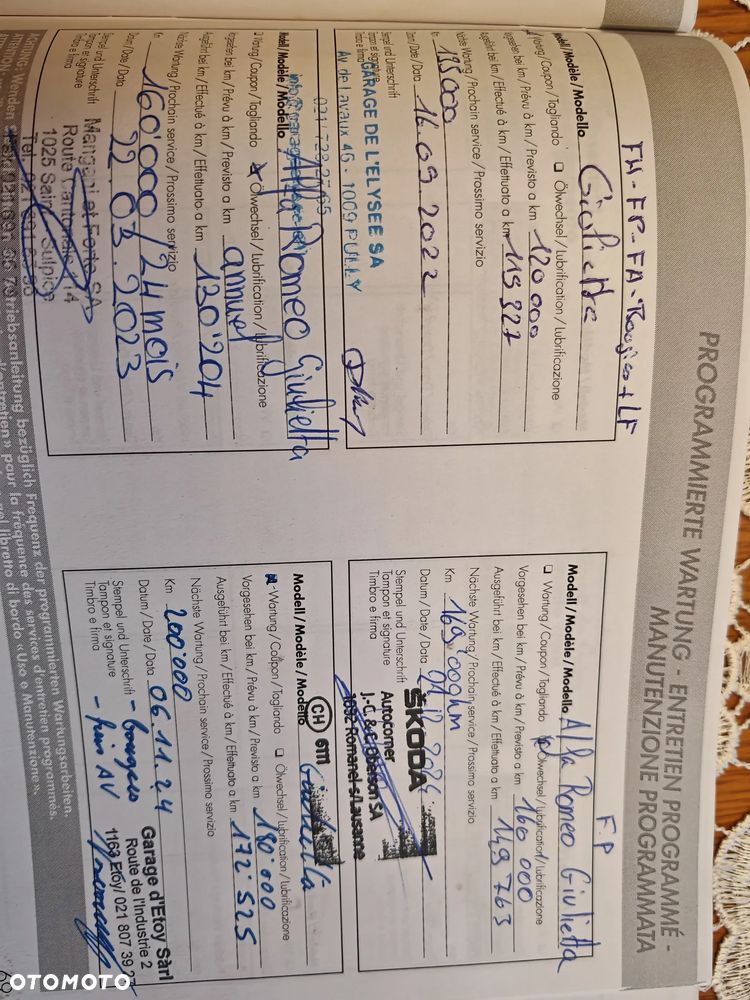 PROGRAMMIERTE WARTUNG - ENTRETIEN PROGRAMMÉ -
MANUTENZIONE PROGRAMMATA
FH-FP-FA- + LF
Modell / Modèle / Modello Giulietta
Wartung / Coupon / Tagliando ❑ Ölwechsel / Lubrification / Lubrificazione
Vorgesehen bei km / Prévu à km / Previsto a km 120 000
Ausgeführt bei km / Effectué à km / Effettuato a km 119 327
Nächste Wartung / Prochain service / Prossimo servizio
Km 195000
Datum / Date / Data 16.09.2022
Stempel und Unterschrift
Tampon et signature
Timbro e firma
GARAGE DE L'ELYSEE SA
Av de Lavaux 46 - 1009 PULLY
021/728 27 65
F.P
Modell / Modèle / Modello Alfa Romeo Giulietta
❑ Wartung / Coupon / Tagliando Ölwechsel / Lubrification / Lubrificazione
Vorgesehen bei km / Prévu à km / Previsto a km 160 000
Ausgeführt bei km / Effectué à km / Effettuato a km 149 763
Nächste Wartung / Prochain service / Prossimo servizio
Km 169.000km
Datum / Date / Data
Stempel und Unterschrift
Tampon et signature
Timbro e firma
ŠKODA
Autocorner
J.-C. & F. Oberson SA
1032 Romanel s/Lausanne
Modell / Modèle / Modello Alfa Romeo Giulietta
❑ Wartung / Coupon / Tagliando Ölwechsel / Lubrification / Lubrificazione
Vorgesehen bei km / Prévu à km / Previsto a km annuel
Ausgeführt bei km / Effectué à km / Effettuato a km 130'204
Nächste Wartung / Prochain service / Prossimo servizio
Km 160'000 / 24 mois
Datum / Date / Data 22.03.2023
Stempel und Unterschrift
Tampon et signature
Timbro e firma
Mangani et Forte SA
Route Cantonale 114
1025 Saint-Sulpice
CH 6111
Modell / Modèle / Modello Giulietta
Wartung / Coupon / Tagliando ❑ Ölwechsel / Lubrification / Lubrificazione
Vorgesehen bei km / Prévu à km / Previsto a km 180'000
Ausgeführt bei km / Effectué à km / Effettuato a km 172'525
Nächste Wartung / Prochain service / Prossimo servizio
Km 200'000
Datum / Date / Data 06.11.24
Stempel und Unterschrift
Tampon et signature
Timbro e firma
Garage d'Etoy Sàrl
Route de l'Industrie 2
1163 Etoy/ 021 807 39 27
ACHTUNG: Wenden Betriebsanleitung bezüglich Frequenz der programmierten Wartungsarbeiten.
d'entretien» pour la fréquence des services d'entretien programmés.
libretto di bordo «Uso e Manutenzione».
OTOMOTO